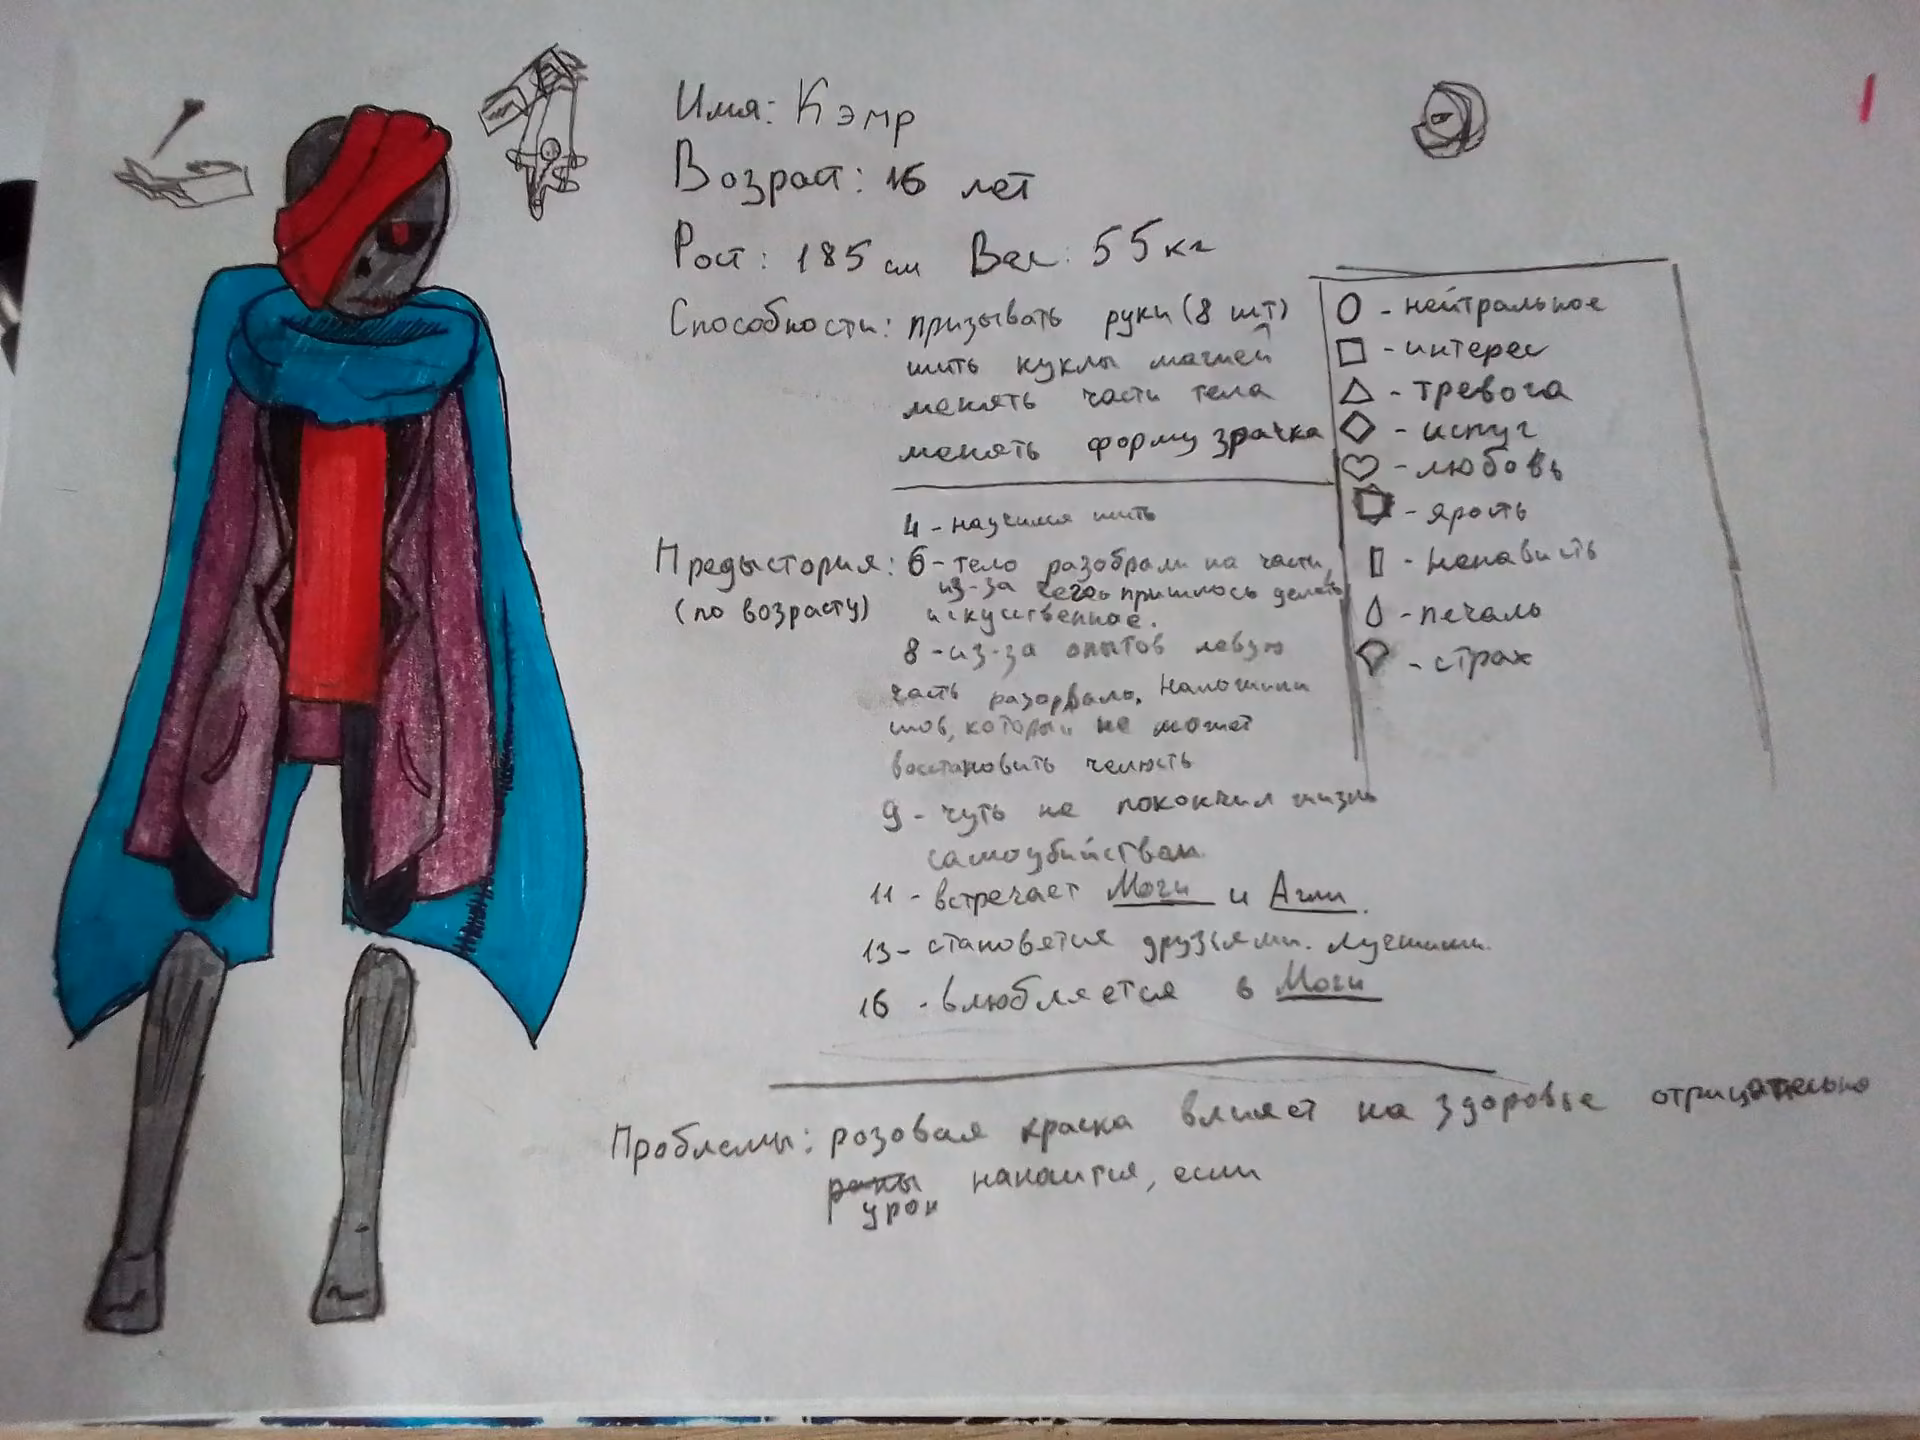 Имя: Кэмр
Возраст: 16 лет
Рост: 185 см Вес: 55 кг
Способности: призывать руки (8 шт)
шить куклы магией
менять части тела
менять форму зрачка
О - нейтральное
- интерес
- тревога
- испуг
- любовь
- ярость
- ненависть
- печаль
- страх
4 - научился шить
Предыстория: 6 - тело разобрали на части,
(по возрасту) из-за чего пришлось делать
искуственное.
8 - из-за опытов левую
часть разорвало. Наложили
шов, который не может
восстановить челюсть
9 - чуть не покончил жизнь
самоубийством
11 - встречает Моги и Агли.
13 - становятся друзьями. лучшими.
16 - влюбляется в Моги
Проблемы: розовая краска влияет на здоровье отрицательно
раны наносится, если
урон